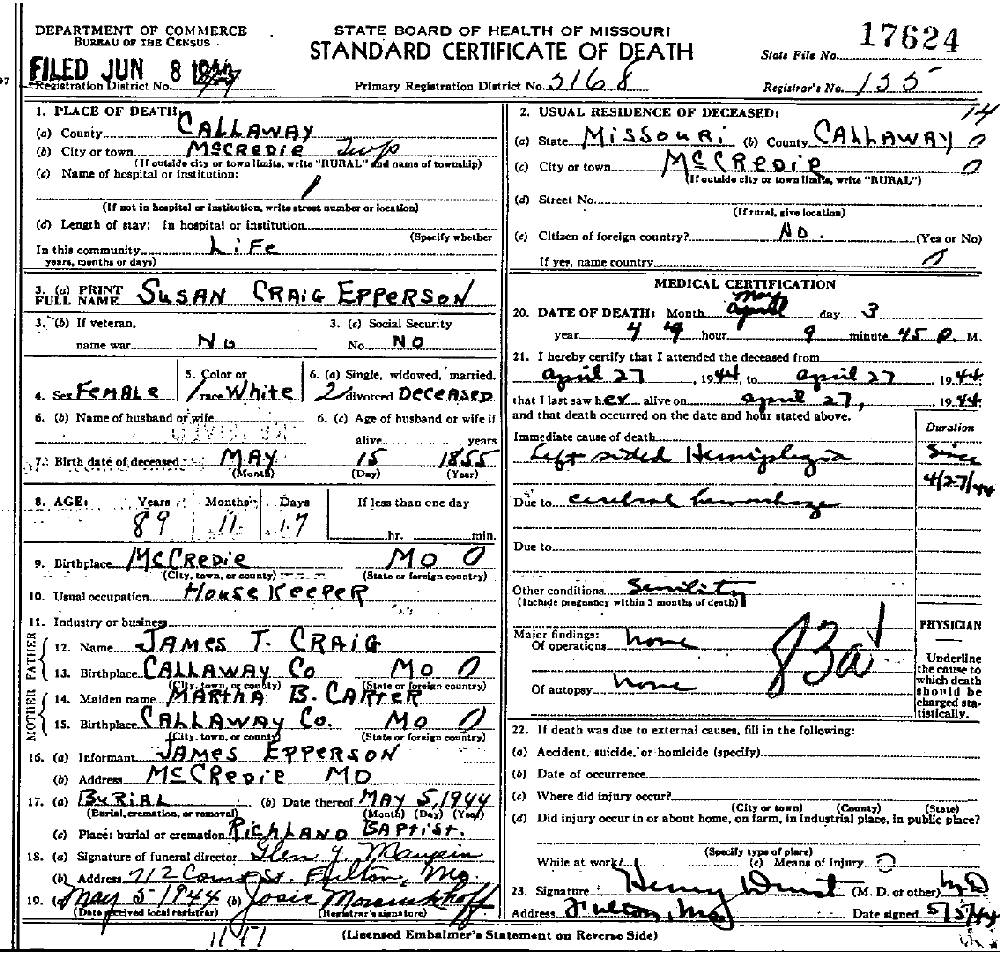 DEPARTMENT OF COMMERCE
BUREAU OF THE CENSUS
STATE BOARD OF HEALTH OF MISSOURI
STANDARD CERTIFICATE OF DEATH
State File No. 17624
FILED JUN 8 1944
Registration District No.
Primary Registration District No. 3168
Registrar's No. 155
1. PLACE OF DEATH:
(a) County CALLAWAY
(b) City or town McCREDIE Twp
(If outside city or town limits, write "RURAL" and name of township)
(c) Name of hospital or institution:
(If not in hospital or institution, write street number or location)
(d) Length of stay: In hospital or institution
(Specify whether
In this community LiFe
years, months or days)
2. USUAL RESIDENCE OF DECEASED: 14
(a) State MISSOURI (b) County CALLAWAY 0
(c) City or town McCREDIE 0
(If outside city or town limits, write "RURAL")
(d) Street No.
(If rural, give location)
(e) Citizen of foreign country? No. (Yes or No)
If yes, name country 0
3. (a) PRINT FULL NAME SUSAN CRAIG EPPERSON
3. (b) If veteran, name war No
3. (c) Social Security No. NO
4. Sex FEMALE
5. Color or race White
6. (a) Single, widowed, married, divorced DECEASED
6. (b) Name of husband or wife
6. (c) Age of husband or wife if alive years
7. Birth date of deceased MAY 15 1855
(Month) (Day) (Year)
8. AGE: Years Months Days If less than one day
89 11 17 hr. min.
9. Birthplace McCREDIE MO 0
(City, town, or county) (State or foreign country)
10. Usual occupation HOUSE KEEPER
11. Industry or business
FATHER
12. Name JAMES T. CRAIG
13. Birthplace CALLAWAY CO MO 0
(City, town, or county) (State or foreign country)
MOTHER
14. Maiden name MARTHA B. CARTER
15. Birthplace CALLAWAY CO. MO 0
(City, town, or county) (State or foreign country)
16. (a) Informant JAMES EPPERSON
(b) Address McCREDIE MO
17. (a) BURIAL (b) Date thereof MAY 5, 1944
(Burial, cremation, or removal) (Month) (Day) (Year)
(c) Place: burial or cremation RICHLAND BAPTIST.
18. (a) Signature of funeral director Glen Y. Maupin
(b) Address 712 Court St. Fulton, Mo.
19. (a) May 5-1944 (b) Josie
(Date received local registrar) (Registrar's signature)
MEDICAL CERTIFICATION
20. DATE OF DEATH: Month May day 3
year 44 hour 9 minute 45 P. M.
21. I hereby certify that I attended the deceased from
April 27, 1944 to April 27 1944
that I last saw her alive on April 27, 1944
and that death occurred on the date and hour stated above.
Duration
Immediate cause of death
Left sided Hemiplegia Since 4/27/44
Due to cerebral hemorrhage
Due to
Other conditions Senility
(Include pregnancy within 3 months of death)
Major findings:
Of operations none
Of autopsy none
83a
PHYSICIAN
Underline the cause to which death should be charged statistically.
22. If death was due to external causes, fill in the following:
(a) Accident, suicide, or homicide (specify)
(b) Date of occurrence
(c) Where did injury occur?
(City or town) (County) (State)
(d) Did injury occur in or about home, on farm, in industrial place, in public place?
(Specify type of place)
While at work? (e) Means of injury
23. Signature Henry (M. D. or other) M.D
Address Fulton, Mo Date signed 5/5/44
(Licensed Embalmer's Statement on Reverse Side)